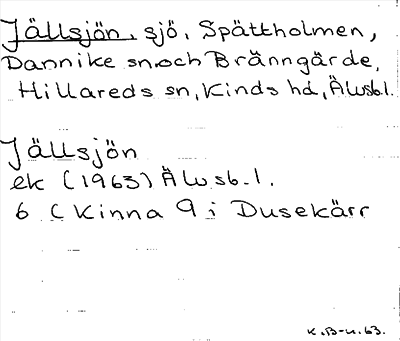 Jällsjön, sjö, Spättholmen,
Dannike sn. och Bränngärde,
Hillareds sn, Kinds hd, Älvsb.l.
Jällsjön
ek (1963) Älvsb.l.
6 C Kinna 9 i Dusekärr
K.B-n.63.